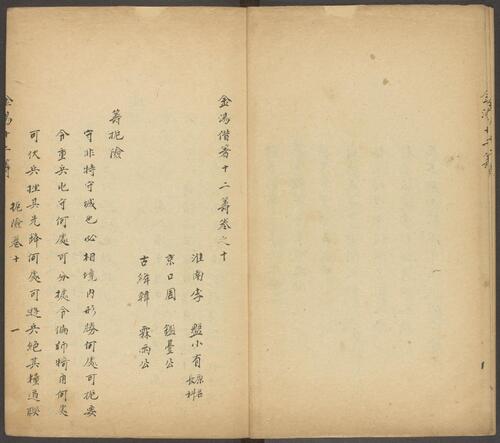 金湯十二籌
金湯借箸十二籌卷之十
淮南李 盤小有 原名長科
京口周 鑑臺公
古絳韓 霖雨公
籌扼險
守非特守城也必相境內形勝何處可扼要
令重兵屯守何處可分據令偏師犄角何處
可伏兵挫其先鋒何處可遊兵絕其糧道聯
金湯十二籌 扼險卷十 一